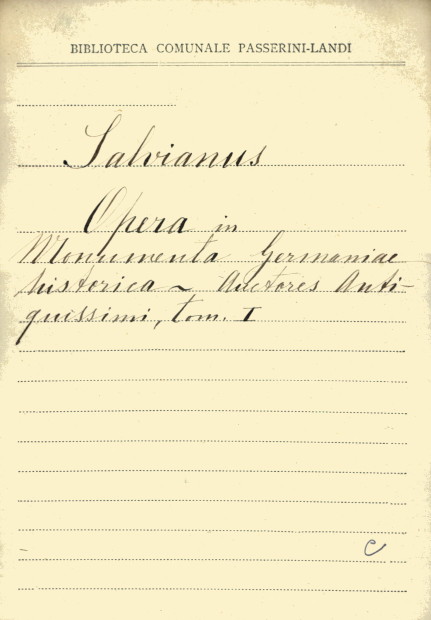 BIBLIOTECA COMUNALE PASSERINI-LANDI
Salvianus
Opera in
Monumenta Germaniae
historica ~ Auctores Anti-
quissimi, tom. I
C